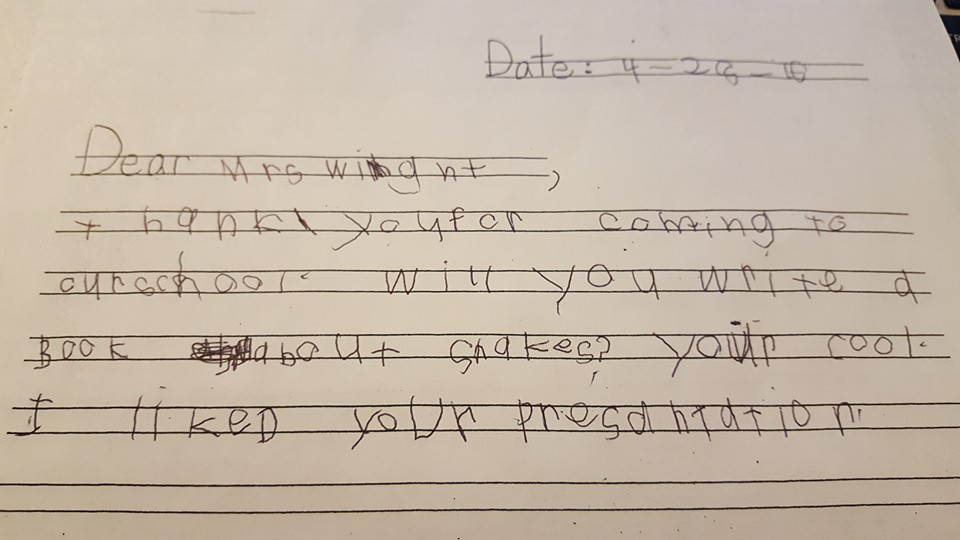 Date: 4-28-16
Dear Mrs Wright,
thank youfor coming to
ourschool. will you write a
Book about snakes? your cool.
I likeD your preasantation.